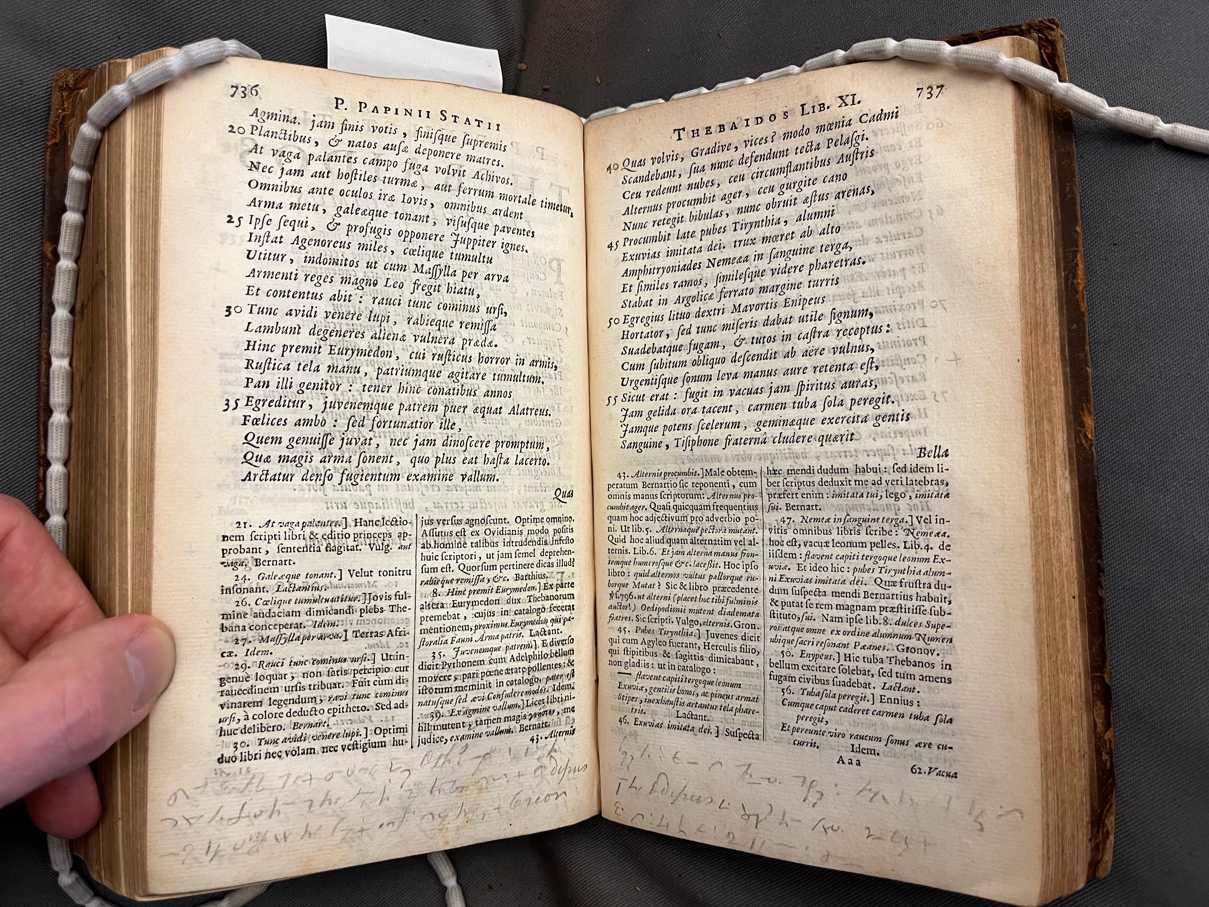 736
P. PAPINII STATII
Agmina. jam finis votis, finisque supremis
20 Planctibus, & natos ausæ deponere matres.
At vaga palantes campo fuga volvit Achivos.
Nec jam aut hostiles turmæ, aut ferrum mortale timetur,
Omnibus ante oculos iræ Iovis, omnibus ardent
Arma metu, galeæque tonant, visusque paventes
25 Ipse sequi, & profugis opponere Juppiter ignes.
Instat Agenoreus miles, cœlique tumultu
Utitur, indomitos ut cum Massylla per arva
Armenti reges magno Leo fregit hiatu,
Et contentus abit: rauci tunc cominus ursi,
30 Tunc avidi venere lupi, rabieque remissa
Lambunt degeneres alienæ vulnera prædæ.
Hinc premit Eurymedon, cui rusticus horror in armis,
Rustica tela manu, patriumque agitare tumultum.
Pan illi genitor: tener hinc conatibus annos
35 Egreditur, juvenemque patrem puer æquat Alatreus.
Fœlices ambo: sed fortunatior ille,
Quem genuisse juvat, nec jam dinoscere promptum,
Quæ magis arma sonent, quo plus eat hasta lacerto.
Arctatur denso fugientum examine vallum.
Quas
21. At vaga palantes.] Hanc lectio-
nem scripti libri & editio princeps ap-
probant, sententia flagitat. Vulg. aut
vaga. Bernart.
24. Galeæque tonant.] Velut tonitru
insonant. Lactantius.
26. Cœlique tumultu utitur.] Jovis ful-
mine audaciam dimicandi plebs The-
bana conceperat. Idem.
27. Massylla per arva.] Terras Afri-
cæ. Idem.
29. Rauci tunc cominus ursi.] Utrin-
genue loquar, non satis percipio cur
raucedinem ursis tribuat. Fuit cum di-
vinarem legendum, ravi tunc cominus
ursi, à colore deducto epitheto. Sed ad-
huc delibero. Bernart.
30. Tunc avidi venere lupi.] Optimi
duo libri nec volam nec vestigium hu-
jus versus agnoscunt. Optime omnino.
Assutus est ex Ovidianis modo positis
ab homine talibus intrudendis infesto
huic scriptori, ut jam semel deprehen-
sum est. Quorsum pertinere dicas illud?
rabieque remissa, &c. Barthius.
8. Hinc premit Eurymedon.] Ex parte
altera Eurymedon dux Thebanorum
premebat, cujus in catalogo fecerat
mentionem, proximus Eurymedon cui pa-
storalia Fauni Arma patris. Lactant.
35. Juvenemque patrem.] E diverso
dicit Pythonem cum Adelphis bellum
movere, pari pœne ætate pollentes: &
istorum meminit in catalogo, pater est
natusque sed ævi Confudere modos. Idem.
39. Examine vallum.] Licet libri ni-
hil mutent, tamen magis
judice, examine vallum. Bernart.
43. Alternis
THEBAIDOS LIB. XI.
737
40 Quas volvis, Gradive, vices? modo mœnia Cadmi
Scandebant, sua nunc defendunt tecta Pelasgi.
Ceu redeunt nubes, ceu circumflantibus Austris
Alternus procumbit ager, ceu gurgite cano
Nunc retegit bibulas, nunc obruit æstus arenas,
45 Procumbit late pubes Tirynthia, alumni
Exuvias imitata dei. trux mœret ab alto
Amphitryoniades Nemeæa in sanguine terga,
Et similes ramos, similesque videre pharetras.
Stabat in Argolicæ ferrato margine turris
50 Egregius lituo dextri Mavortis Enipeus
Hortator, sed tunc miseris dabat utile signum,
Suadebatque fugam, & tutos in castra receptus:
Cum subitum obliquo descendit ab aëre vulnus,
Urgentisque sonum leva manus aure retenta est,
55 Sicut erat: fugit in vacuas jam spiritus auras,
Jam gelida ora tacent, carmen tuba sola peregit.
Jamque potens scelerum, geminæque exercita gentis
Sanguine, Tisiphone fraterna cludere quærit
Bella
43. Alternis procumbit.] Male obtem-
peratum Bernartio sic reponenti, cum
omnis manus scriptorum: Alternus pro-
cumbit ager. Quasi quicquam frequentius
quam hoc adjectivum pro adverbio po-
ni. Ut lib. 5. Alternaque pectora mutant.
Quid hoc aliud quam alternatim vel al-
ternis. Lib. 6. Et jam alterna manus fron-
temque humerosque &c. lacessit. Hoc ipso
libro: quid alternos vultus pallorque ru-
borque Mutat? Sic & libro præcedente
Oedipodii mutent diademata
fratres. Sic scripti. Vulgo, alternis. Gron.
45. Pubes Tirynthia.] Juvenes dicit
qui cum Agyleo fuerant, Herculis filio,
qui stipitibus & sagittis dimicabant,
non gladiis: ut in catalogo:
— flavent capiti tergoque leonum
Exuviæ, gentilis honos, ac pineus armat
Stipes, inexhaustis artantur tela phare-
tris. Lactant.
46. Exuvias imitata dei.] Suspecta
hæc mendi dudum habui: sed idem li-
ber scriptus deduxit me ad veri latebras,
præfert enim: imitata tui, lego, imitata
sui. Bernart.
47. Nemeæ in sanguine terga.] Vel in-
vitis omnibus libris scribe: Nemeæa.
hoc est, vacuæ leonum pelles. Lib. 4. de
iisdem: flavent capiti tergoque leonum Ex-
uviæ. Et ideo hic: pubes Tirynthia alum-
ni Exuvias imitata dei. Quæ frustra du-
dum suspecta mendi Bernartius habuit,
& putat se rem magnam præstitisse sub-
stituto, sui. Nam ipse lib. 8. dulces Supe-
Gronov.
50. Enypeus.] Hic tuba Thebanos in
bellum excitare solebat, sed tum amens
fugam civibus suadebat. Lactant.
56. Tuba sola peregit.] Ennius:
Cumque caput caderet carmen tuba sola
peregit,
Et pereunte viro raucum sonus ære cu-
currit. Idem.
Aaa
62. Vacua